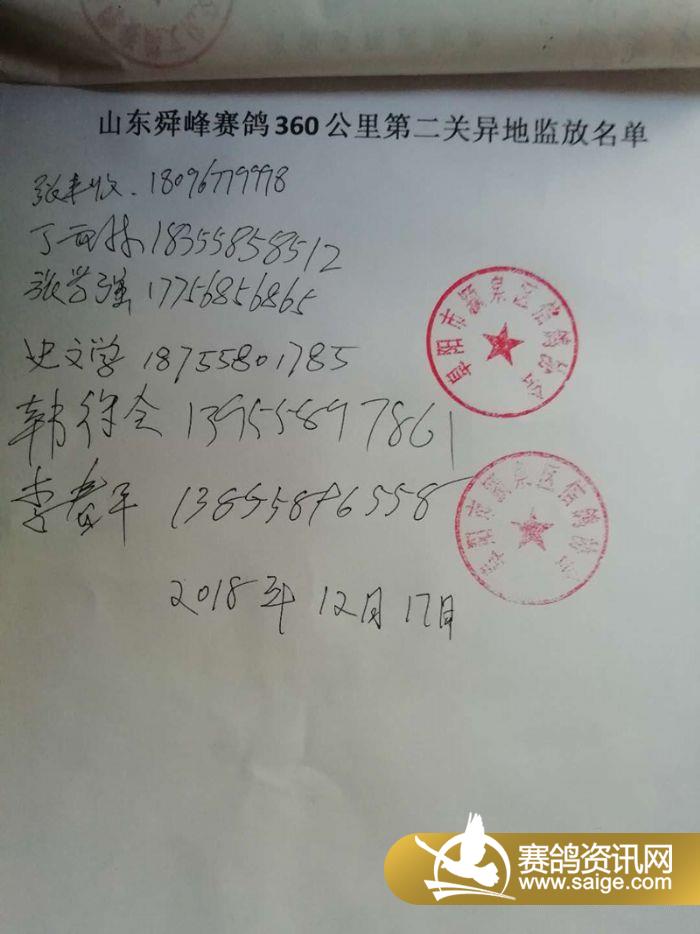 山东舜峰赛鸽360公里第二关异地监放名单
张丰收.18096779998
丁西林18355858512
张学强17756856865
史文学 18755801785
韩徐会 13955897861
李春平 13855896558
阜阳市颍泉区信鸽协会
阜阳市颍泉区信鸽协会
2018年12月17日
赛鸽资讯网
www.saige.com